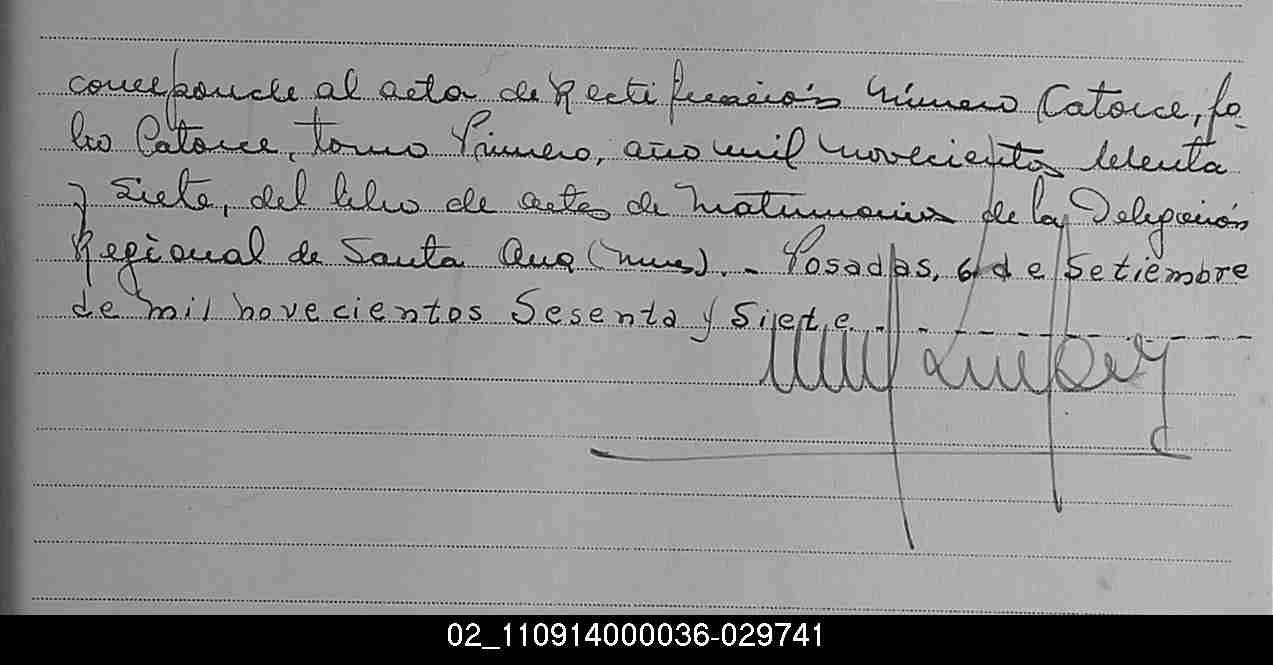 corresponde al acta de Rectificación Número Catorce, fo-
lio Catorce, tomo Primero, año mil novecientos sesenta
y siete, del libro de actas de Matrimonios de la Delegación
Regional de Santa Ana (Mnes). - Posadas, 6 de Setiembre
de mil novecientos Sesenta y Siete. - - - - - - - -
02_110914000036-029741